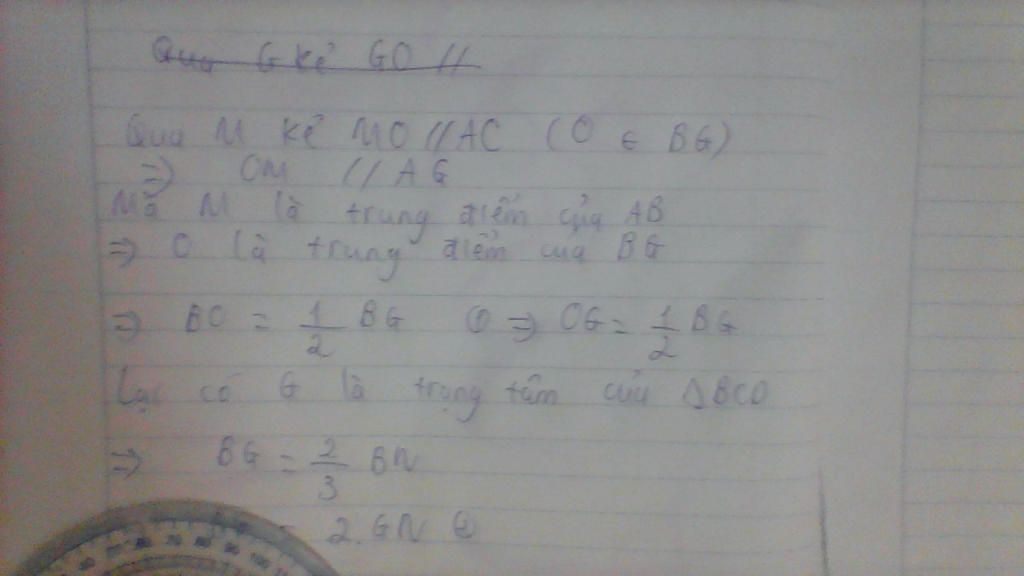 Qua G kẻ GO //
Qua M kẻ MO // AC (O ∈ BG)
=> OM // AG
Mà M là trung điểm của AB
=> O là trung điểm của BG
=> BO = 1/2 BG ① => OG = 1/2 BG
Lại có G là trọng tâm của ΔBCD
=> BG = 2/3 BN
= 2.GN ②